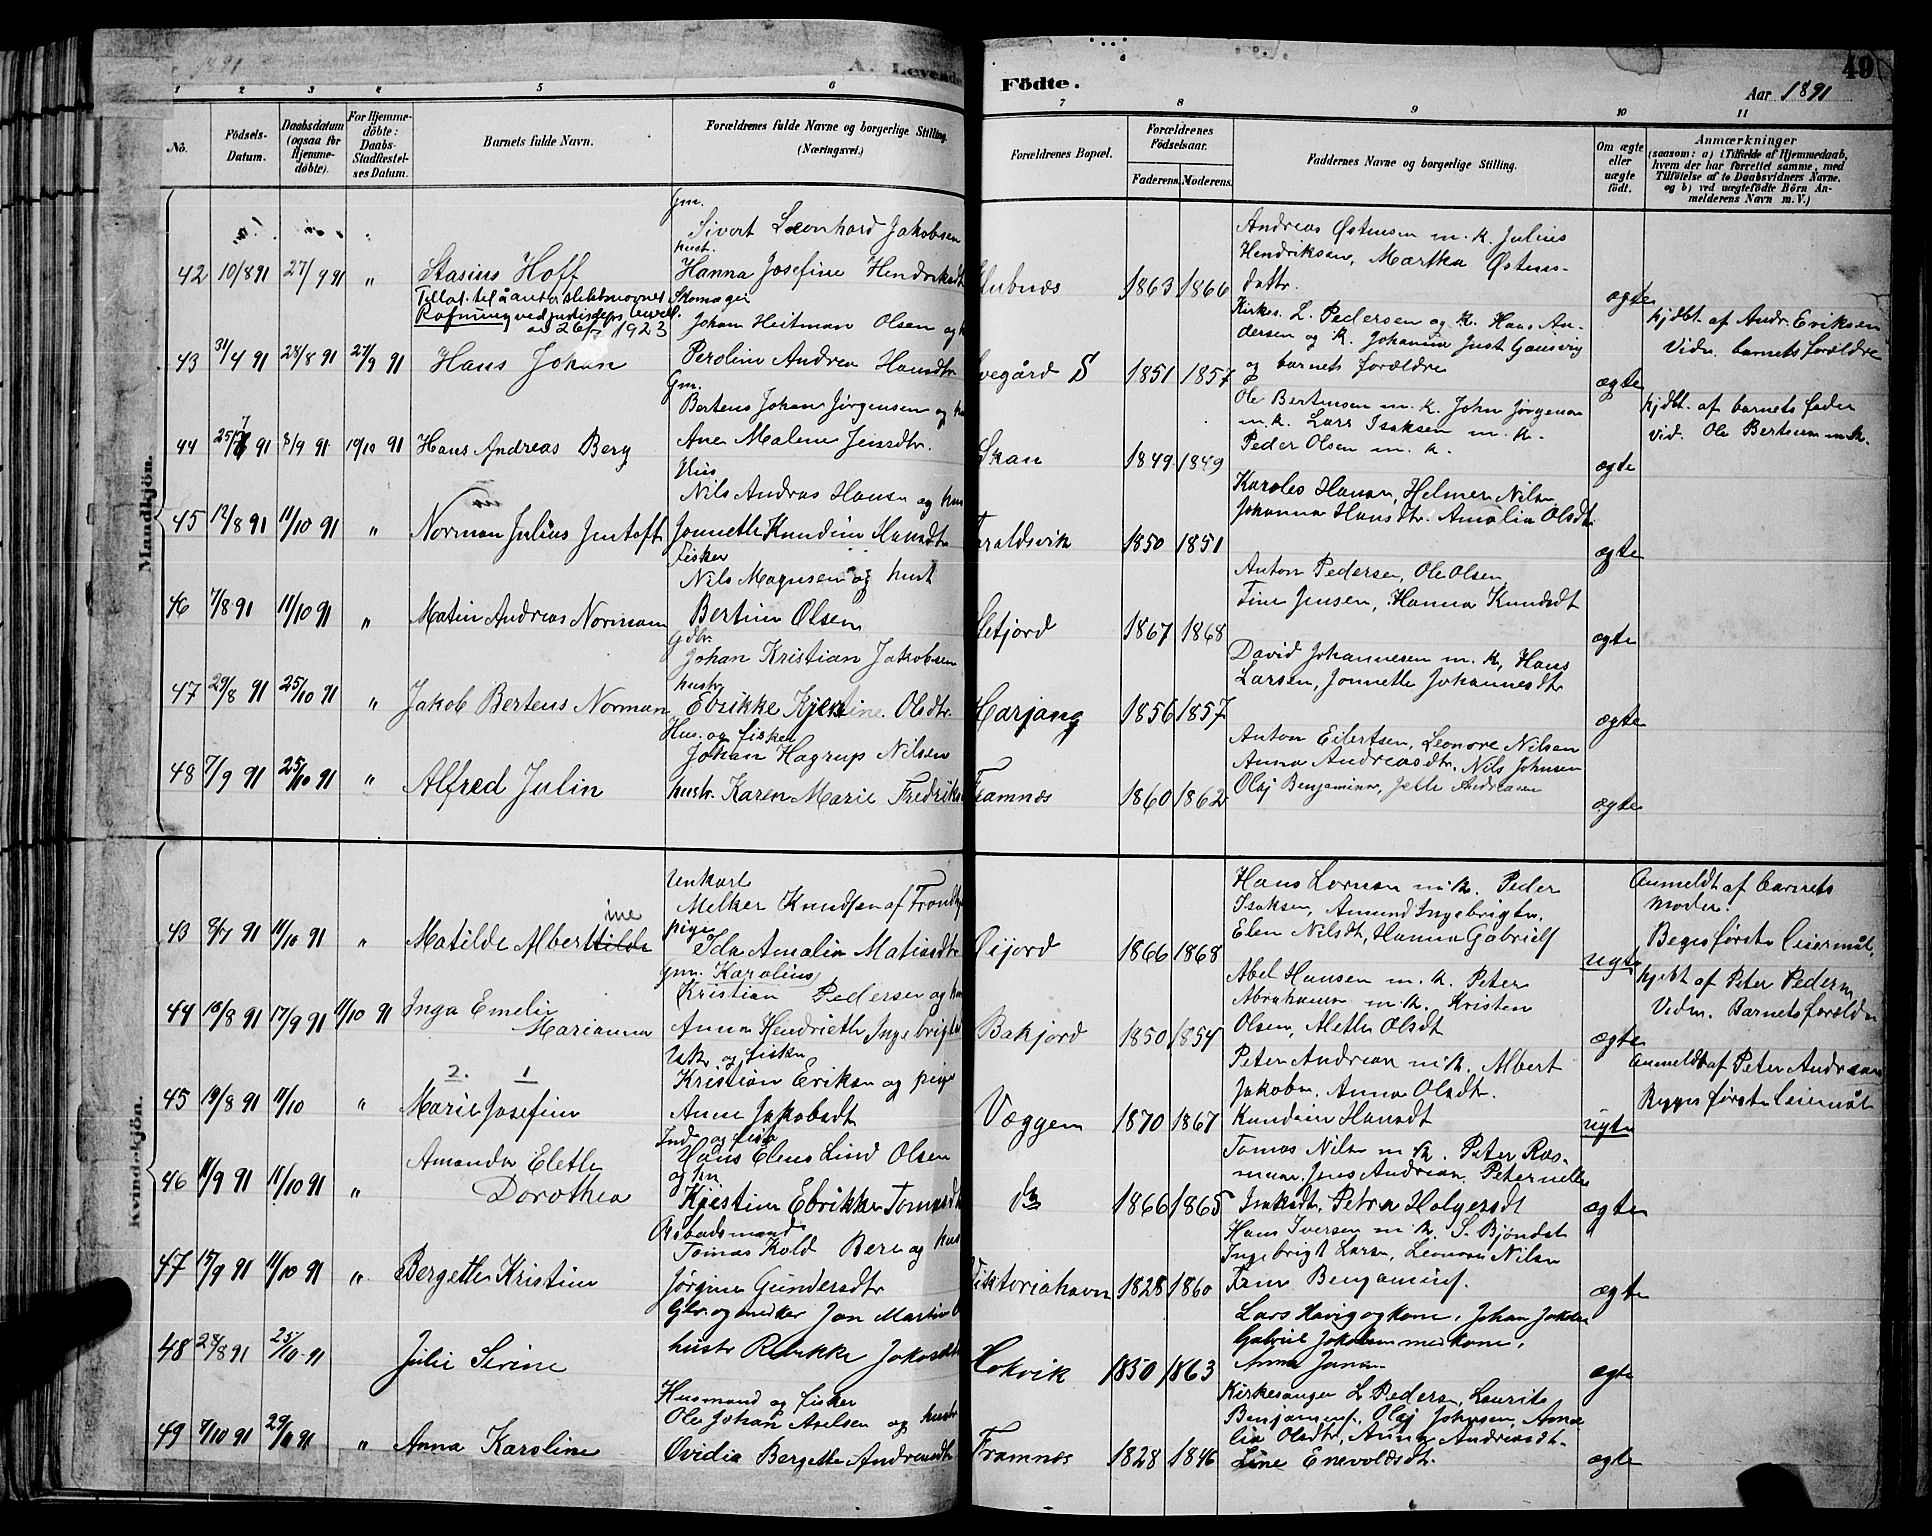 1891
A. Levende
Födte.
40
Aar 1891
1 2 3 4 5 6 7 8 9 10 11
No.
Födsels-Datum.
Daabsdatum (ogsaa for Hjemmedøbte).
For Hjemmedøbte: Daabs-Stadfæstelses Datum.
Barnets fulde Navn.
Forældrenes fulde Navne og borgerlige Stilling. (Næringsvei.)
Forældrenes Bopæl.
Forældrenes Födselsaar.
Faderens. Moderens.
Faddernes Navne og borgerlige Stilling.
Om ægte eller uægte födt.
Anmærkninger
(saasom: a) i Tilfælde af Hjemmedaab, hvem der har forrettet samme, med Tilføielse af to Daabsvidners Navne. og b) ved uægtefödte Börn Anmelderens Navn m. V.)
Mandkjön.
Gm.
Sivert Leonhard Jakobsen
hust.
42 10/8 91 27/9 91 " Stasius Hoff Hanna Josefine Hendriksdt 1863 1866 ægte
Andreas Østensen m. k. Julius
Hendriksen, Martha Østens-
dattr.
ved justisdeps bevill.
av 26/7 1923
Skomager
Johan Heitman Olsen og
43 31/4 91 28/8 91 27/9 91 Hans Johan Peroline Andrea Hansdtr 1851 1857 ægte
Kirkes. L. Pedersen og k. Hans An-
dersen og k. Johanna Just Gausvig
og barnets forældre
hjdbt. af Andr. Eriksen
Vidn. barnets forældre
Gm.
Bertens Johan Jørgensen og
44 25/7 91 8/9 91 19/10 91 Hans Andreas Berg Ane Malene Jensdtr. 1849 1849 ægte
Ole Bertensen m. k. John Jørgensen
m. k. Lars Isaksen m. k.
Peder Olsen m. k.
hjdbt. af barnets fader
vid. Ole Bertensen m. k.
Hus
Nils Andreas Hansen og hus
45 12/8 91 11/10 91 " Norman Julius Jentoft Jonnette Knudine Hansdtr Taraldsvik 1850 1851 ægte
Karoles Hansen, Helmer Nilsen
Johanna Hansdtr. Amalia Olsdt.
Fisker
Nils Magnusen og hust
46 7/8 91 11/10 91 " Matin Andreas Norman Bertine Olsen 1867 1868 ægte
Anton Pedersen, Ole Olsen,
Tine Jensen, Hanna Knudsdt
Gdbr.
Johan Kristian Jakobsen
hustr
47 29/8 91 25/10 91 " Jakob Bertens Norman Ebrikke Kjerstine Olsdtr. Harjang 1856 1857 ægte
David Johannesen m. k, Hans
Larsen, Jonnette Johannesdtr
Hus. og fisker
Johan Hagrup Nilsen
48 7/9 91 25/10 91 " Alfred Julin hustr. Karen Marie Fredriks Framnæs 1860 1862 ægte
Anton Eilertsen, Leonore Nilsen
Anna Andreasdtr. Nils Johnsen
Olaj Benjaminsen, Jette Andreasen
Kvindekjön.
Unkarl
Melker Knudsen af Trondhj
pige
43 8/7 91 11/10 91 " Matilde Albertine Ida Amalia Matiasdtr 1866 1868 uægte
Hans Larsen m. k. Peder
Isaksen, Amund Ingebrigtsen.
Elen Nilsdt, Hanna Gabriels
Anmeldt af barnets
Moder.
Begges første leiermål.
Gm. Karolius
Kristian Pedersen og
44 18/8 91 17/9 91 11/10 91 Inga Emelie Marianna Anna Hendriette Ingebrigts Bakjord 1850 1854 ægte
Abel Hansen m. k. Peter
Abrahamsen m. k. Kristen
Olsen, Alethe Olsdt
hjdbt af Peter Pedersen
Vidn. Barnets forældre
Ukr og fisker
Kristian Eriksen og pige
2. 1
45 19/8 91 11/10 " Marie Josefine Anne Jakobsdt Væggen 1870 1867 uægte
Peter Andreasen m. k. Albert
Jakobsen, Anna Olsdtr.
Knudine Hansdt
Anmeldt af Peter Andreasen
Begges første leiermål
Ind og fisk
Hans Elens Lind Olsen
og hu
46 11/9 91 11/10 91 " Amanda Elethe Dorothea Kjerstine Ebrikke Tomasdt do 1866 1865 ægte
Tomas Nilsen m k. Peter Ras-
musen, Jens Andreasen, Peternelle
Isaksdtr. Petra Holgersdt
Arbeidsmand
Tomas Kold Berg og hus
47 15/9 91 11/10 91 " Bergette Kristine Jørgine Gundersdtr Viktoriahavn 1828 1860 ægte
Hans Iversen m k. S. Bjøndal
Ingebrigt Larsen, Leonora Nilsen
Trine Benjamins.
Gbr. og snedker Jon Martin
48 28/8 91 25/10 91 Julie Serine hustr Rebekke Jakobsdt 1850 1863 ægte
Lars Havig og kone, Johan Jakobsen
Gabriel Jakobsen med kone,
Anna Jansen
Husmand og fisker
Ole Johan Axelsen og hustr
49 7/10 91 29/11 91 " Anna Karoline Ovidia Bergette Andreasdtr Framnæs 1828 1846 ægte
Kirkesanger L Pedersen, Laurits
Benjamins, Olaj Johnsen, Ama-
lia Olsdtr, Anna Andreasdt.
Line Enevoldsdt.